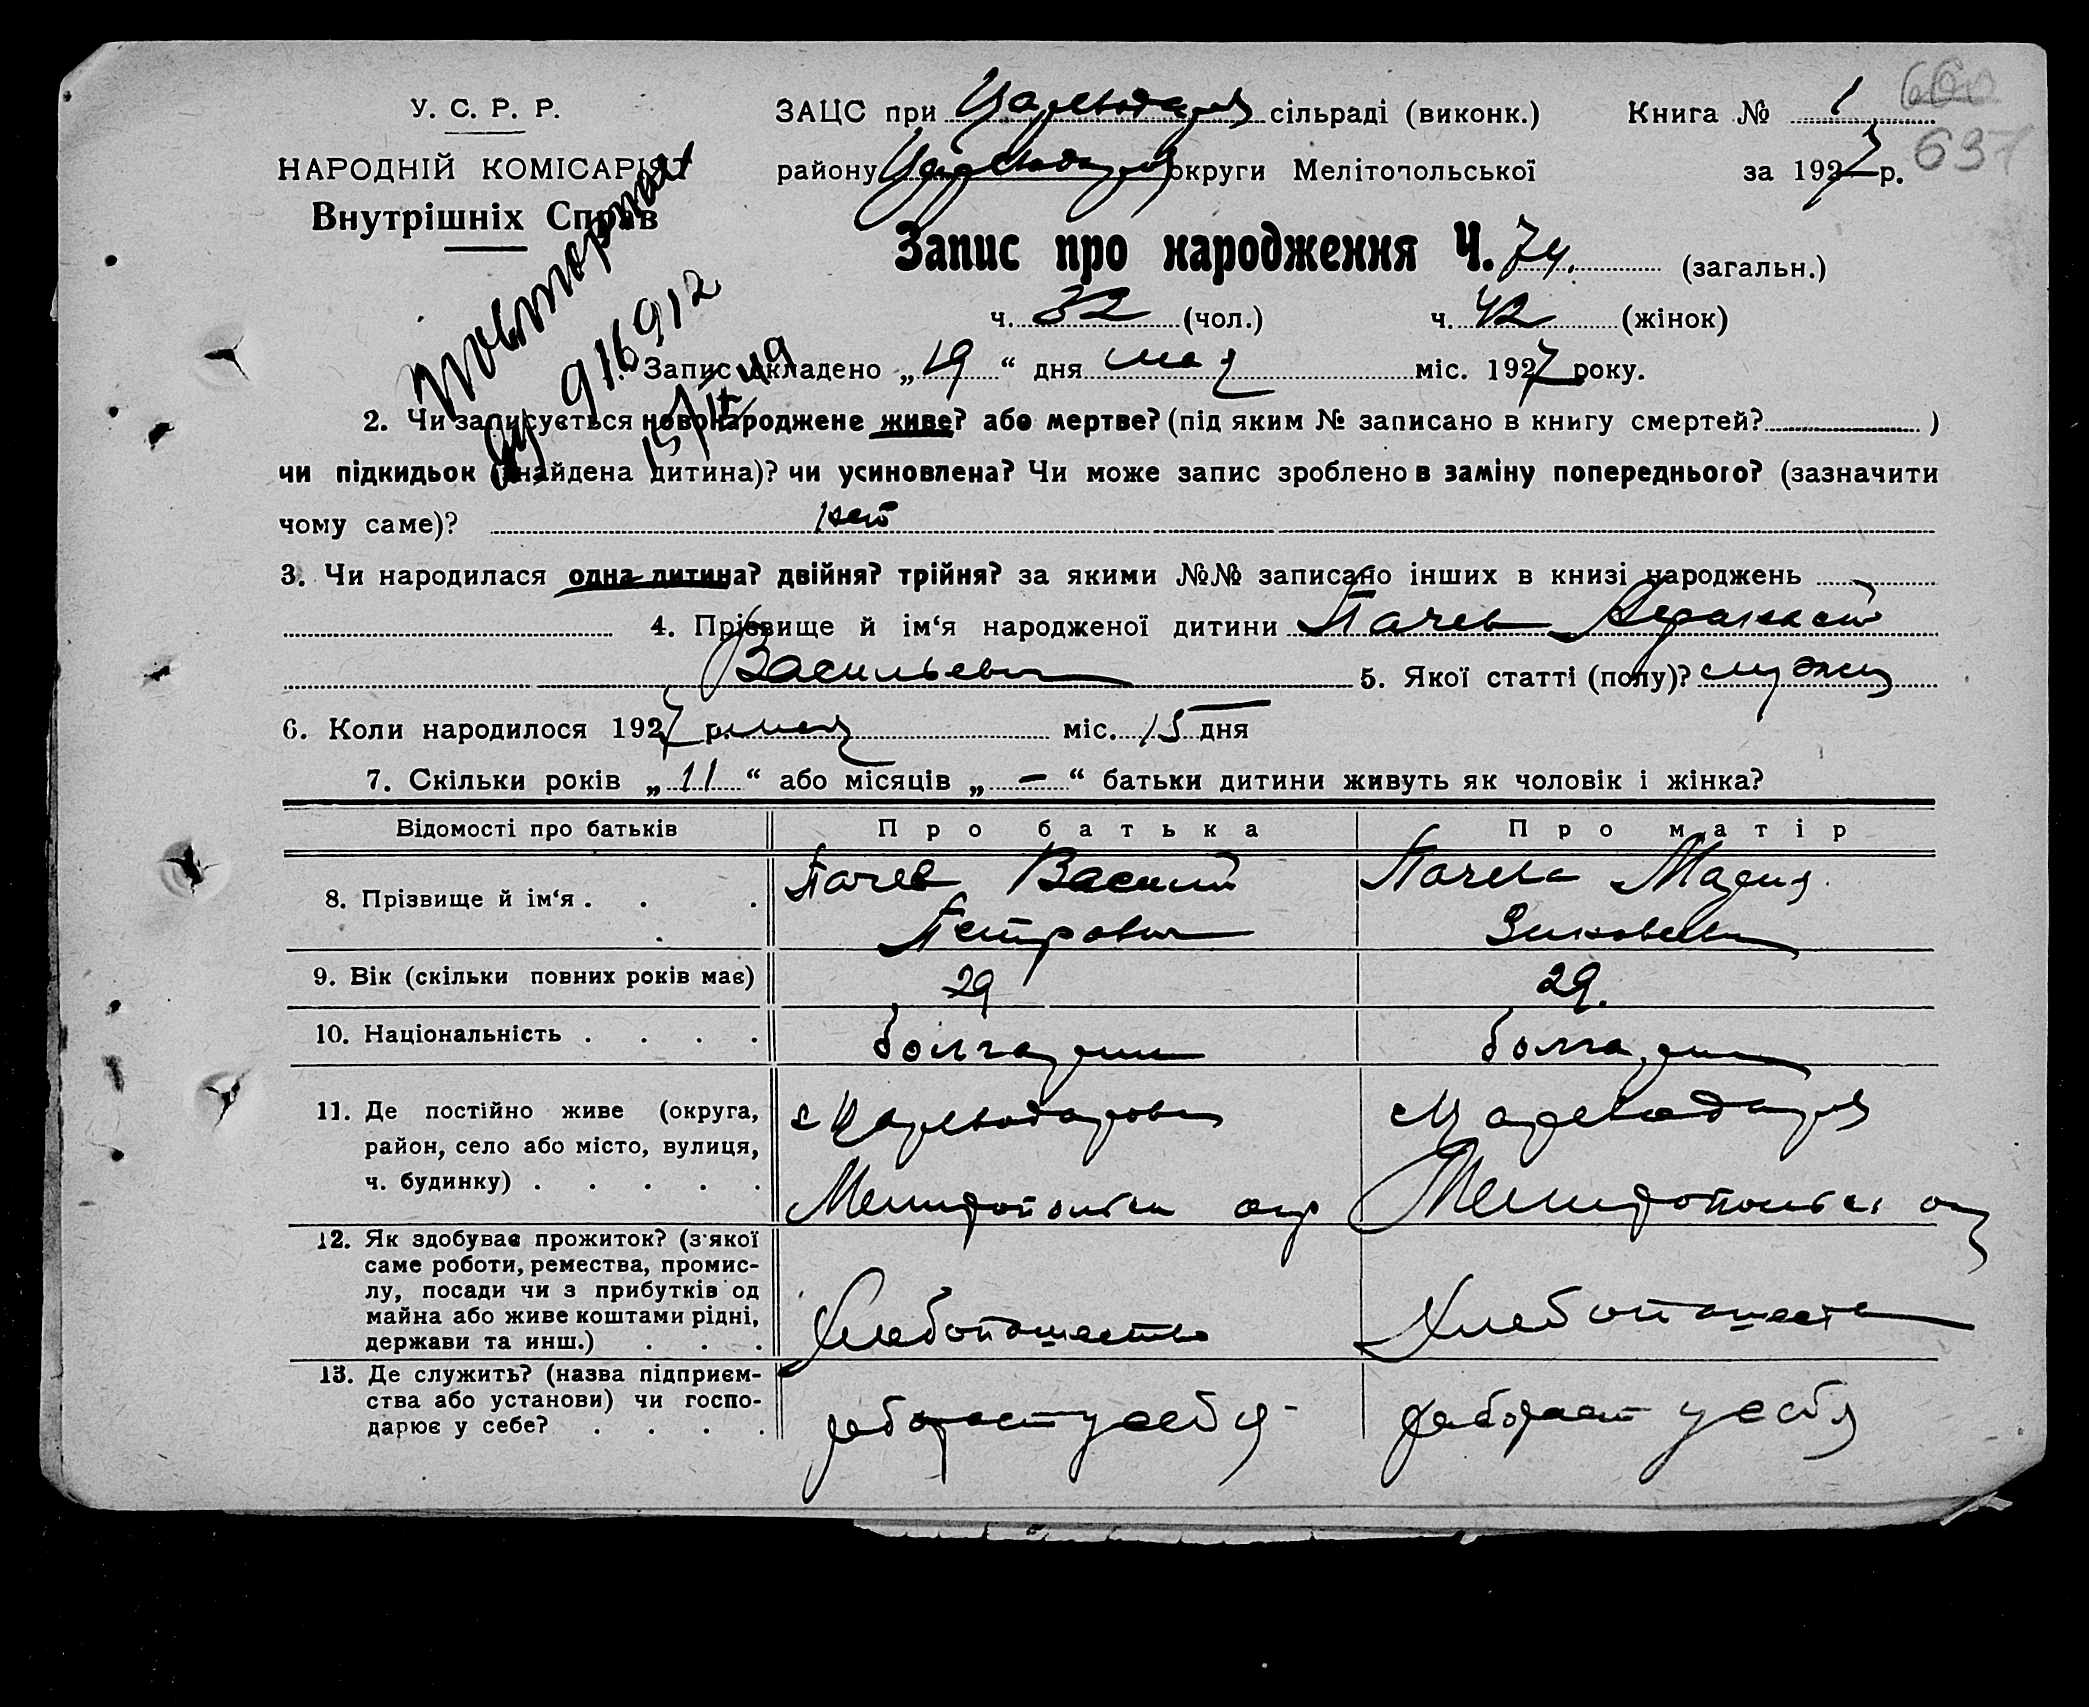 У. С. Р. Р.
НАРОДНІЙ КОМІСАРІЯТ
Внутрішніх Справ
ЗАЦС при Цареводаров сільраді (виконк.) Книга № 1
660
району Цареводаров округи Мелітопольської за 1927 р.
637
Повторный
916912
15/IX 49
Запис про народження Ч. 74. (загальн.)
ч. 32 (чол.) ч. 42 (жінок)
1. Запис складено „19“ дня мая міс. 1927 року.
2. Чи записується новонароджене живе? або мертве? (під яким № записано в книгу смертей? )
чи підкидьок (знайдена дитина)? чи усиновлена? Чи може запис зроблено в заміну попереднього? (зазначити
чому саме)?
3. Чи народилася одна дитина? двійня? трійня? за якими №№ записано інших в книзі народжень
4. Прізвище й ім‘я народженої дитини Пачев
Васильевич 5. Якої статті (полу)? мужск
6. Коли народилося 1927 р. мая міс. 15 дня
7. Скільки років „11“ або місяців „—“ батьки дитини живуть як чоловік і жінка?
Відомості про батьків Про батька Про матір
8. Прізвище й ім‘я . . . Пачев Василий Петрович Пачева Мария
9. Вік (скільки повних років має) 29 29.
10. Національність . . . . болгарин болгарин
11. Де постійно живе (округа, район, село або місто, вулиця, ч. будинку) . . . . . с Цареводаровка Мелитопольск окр с Цареводаров Мелитопольск ок
12. Як здобуває прожиток? (з'якої саме роботи, ремества, промислу, посади чи з прибутків од майна або живе коштами рідні, держави та инш.) . . . Хлебопашество Хлебопашеств
13. Де служить? (назва підприємства або установи) чи господарює у себе? . . . . работает у себя работает у себя